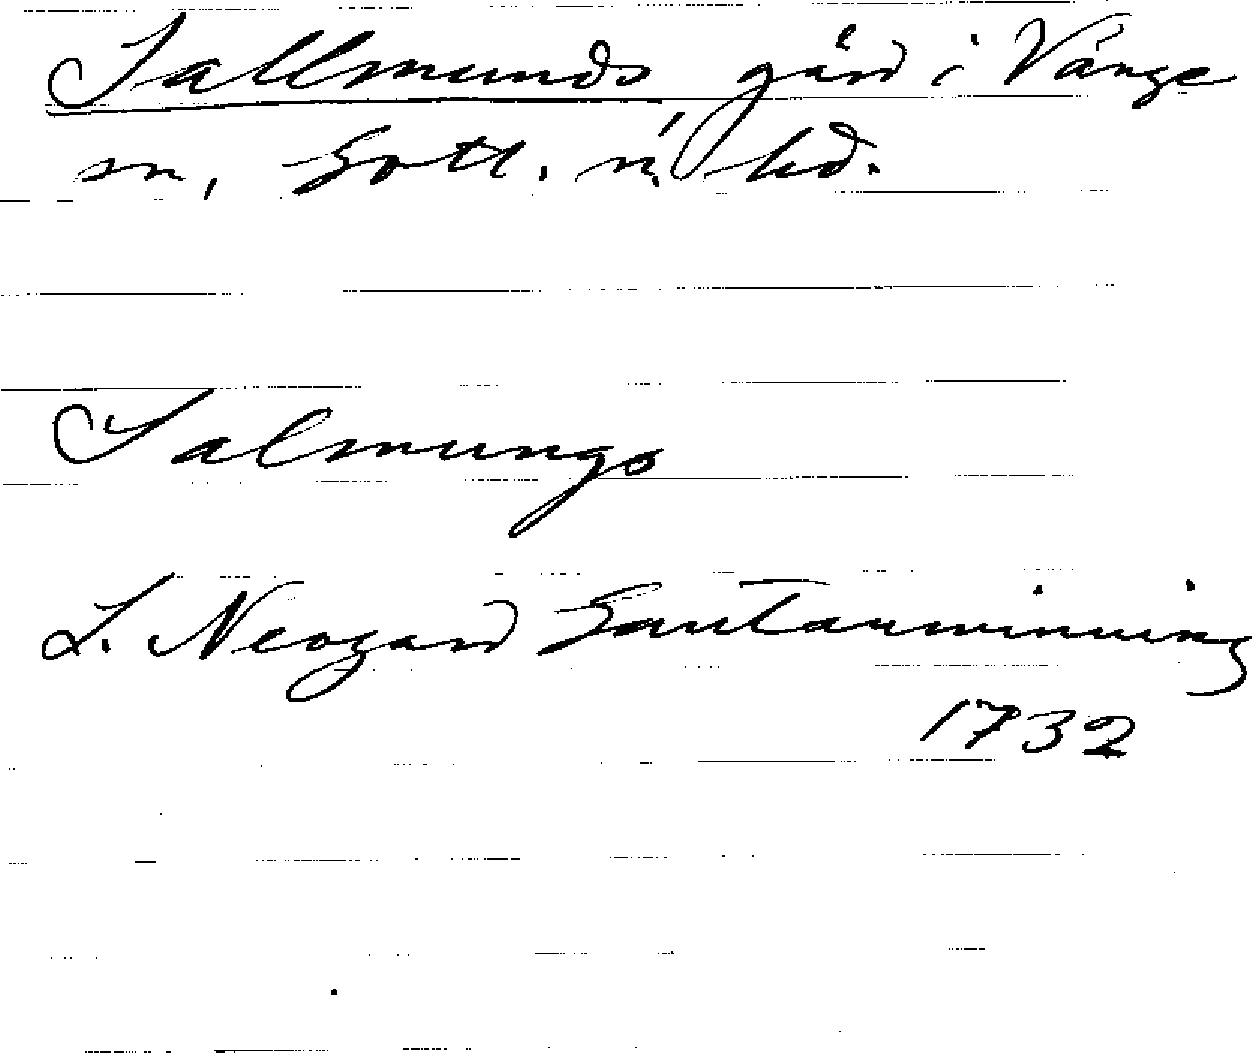 Sallmunds, gård i Vänge
sn, Gotl. n. hd.
Salmungs
L. Neogard Gautauminning
1732